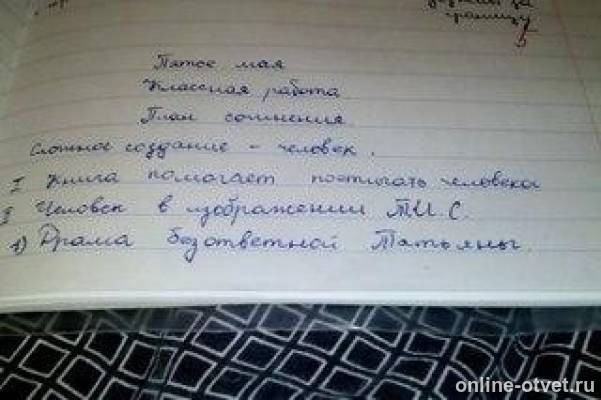 за
границу
5
Пятое мая
Классная работа
План сочинения.
Сложное создание – человек.
I Книга помогает постигать человека
II Человек в изображении Т.И.С.
1) Драма безответной Татьяны.
online-otvet.ru